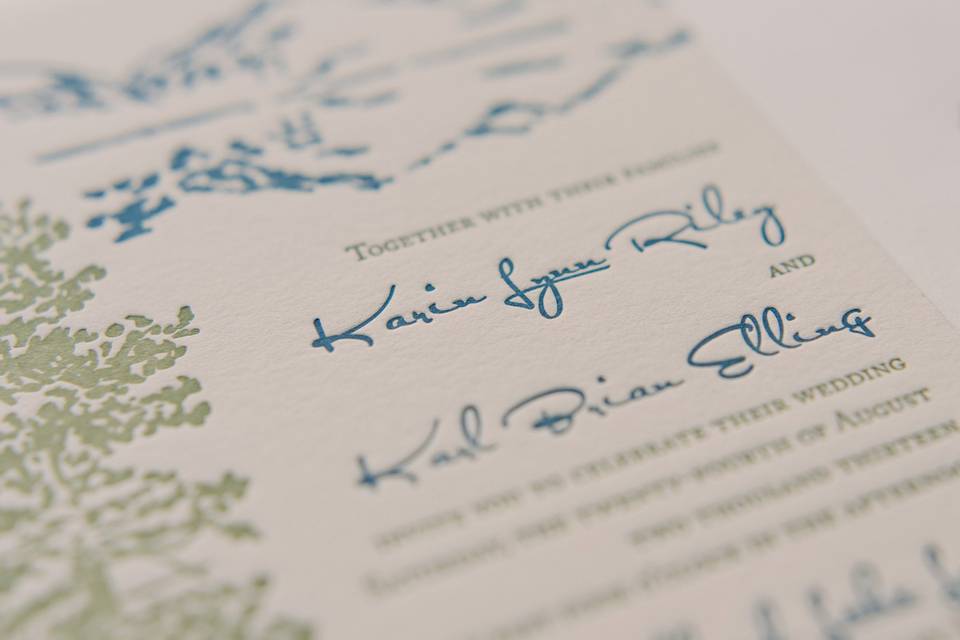 Together with their families
Karin Lynn Riley
and
Karl Brian Elling
invite you to celebrate their wedding
Saturday, the twenty-fourth of August
two thousand thirteen
in the afternoon